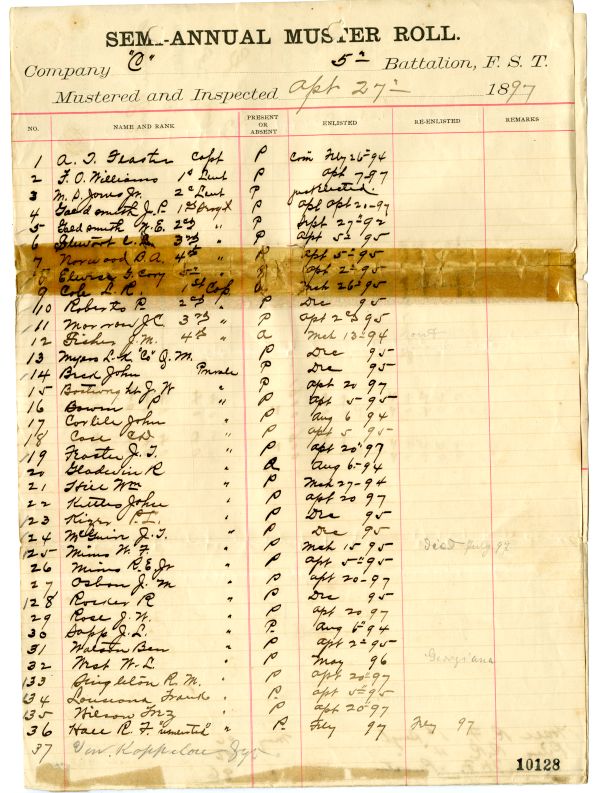 SEMI-ANNUAL MUSTER ROLL.
Company "C" 5th Battalion, F. S. T.
Mustered and Inspected Apt 27th 1897
NO. NAME AND RANK PRESENT OR ABSENT ENLISTED RE-ENLISTED REMARKS
1 A. T. Feaster Capt P Com Feby 26th 94
2 F. O. Williams 1st Lieut P Apt 7-97
3 M. D. Jones Jr. 2d Lieut P just elected
4 Goldsmith J. P. 1st Sergt P Apt 21-97
5 Goldsmith W. E. 2nd " P Sept 27th 92
6 3rd " P Apt 5th 95
7 Norwood B. A. 4th " Apt 5th 95
8 Geo 5th " Apt 2nd 95
9 Cole L. R. 1st Corp Mch 26th 95
10 Roberts P. 2nd " P Dec 95
11 Morrow J. C. 3rd " P Apt 2nd 95
12 Fisher J. M. 4th " A Mch 13th 94
13 Myers L. K "Co" Q. M. P Dec 95
14 John Private P Dec 95
15 J W " P Apt 20 97
16 Bowen P " P Apt 5 95
17 John " P Aug 6 94
18 Case C D " P Apt 5 95
19 Feaster J. T. " P Apt 20th 97
20 Gladwin R " A Aug 6-94
21 Hill Wm " P Mch 27-94
22 Kittles John " P Apt 20 97
23 Kizer P. L. " P Dec 95
24 McGuire J. T. " P Dec 95
25 Mims W. F. " P Mch 15 95 Died July 97
26 Mims R. E. Jr " P Apt 5th 95
27 Osban J. M " P Apt 20-97
28 Rocker R " P Dec 95
29 Rose J. W. " P Apt 20 97
30 Sapp J. L. " P Aug 6th 94
31 Walston Ben " P Apt 2nd 95
32 West W. L " P May 96 Georgiana
33 Singleton R. M. " P Apt 20th 97
34 Louisiana Frank " P Apt 5th 95
35 Wilson " P Apt 20th 97
36 Hall R. F. " P Feby 97 Feby 97
37
10128